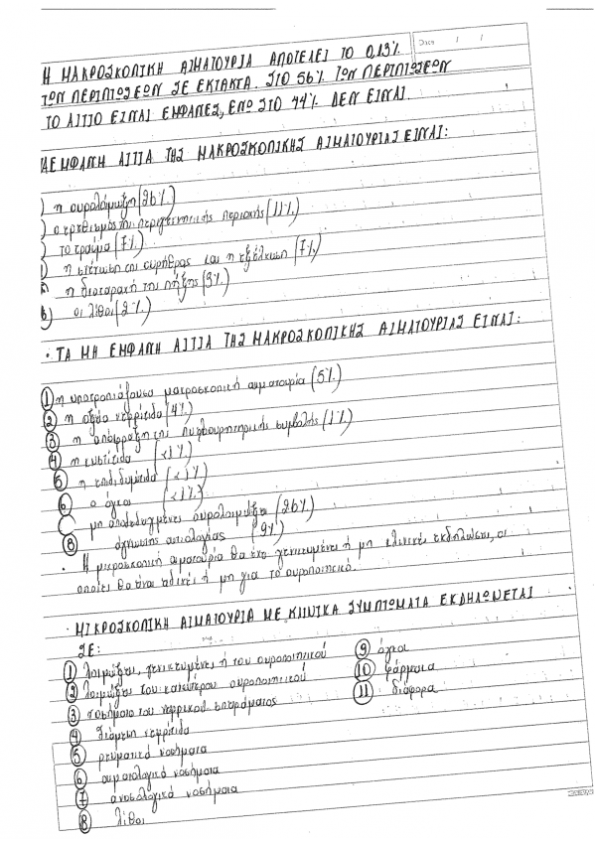 Η ΜΑΚΡΟΣΚΟΠΙΚΗ ΑΙΜΑΤΟΥΡΙΑ ΑΠΟΤΕΛΕΙ ΤΟ 0,13%
ΤΩΝ ΠΕΡΙΠΤΩΣΕΩΝ ΣΕ ΕΚΤΑΚΤΑ. ΣΤΟ 56% ΤΩΝ ΠΕΡΙΠΤΩΣΕΩΝ
ΤΟ ΑΙΤΙΟ ΕΙΝΑΙ ΕΜΦΑΝΕΣ, ΕΝΩ ΣΤΟ 44% ΔΕΝ ΕΙΝΑΙ.
ΕΜΦΑΝΗ ΑΙΤΙΑ ΤΗΣ ΜΑΚΡΟΣΚΟΠΙΚΗΣ ΑΙΜΑΤΟΥΡΙΑΣ ΕΙΝΑΙ:
) η ουρολοίμωξη (26%)
) ο ερεθισμός της περιγεννητικής περιοχής (11%)
) το τραύμα (7%)
) η στένωση της ουρήθρας και η εξέλκωση (7%)
η διαταραχή της πήξης (3%)
6) οι λίθοι (2%)
· ΤΑ ΜΗ ΕΜΦΑΝΗ ΑΙΤΙΑ ΤΗΣ ΜΑΚΡΟΣΚΟΠΙΚΗΣ ΑΙΜΑΤΟΥΡΙΑΣ ΕΙΝΑΙ:
1 η υποτροπιάζουσα μακροσκοπική αιματουρία (5%)
2 η οξεία νεφρίτιδα (4%)
3 η απόφραξη της πυελοουρητηρικής συμβολής (1%)
4 η κυστίτιδα (<1%)
5 η επιδιδυμίτιδα (<1%)
6 ο όγκος (<1%)
μη αποδεδειγμένες ουρολοιμώξεις (26%)
8 άγνωστης αιτιολογίας (9%)
· Η μικροσκοπική αιματουρία θα έχει γενικευμένες ή μη κλινικές εκδηλώσεις, οι
οποίες θα είναι ειδικές ή μη για το ουροποιητικό.
· ΜΙΚΡΟΣΚΟΠΙΚΗ ΑΙΜΑΤΟΥΡΙΑ ΜΕ ΚΛΙΝΙΚΑ ΣΥΜΠΤΩΜΑΤΑ ΕΚΔΗΛΩΝΕΤΑΙ
ΣΕ:
1 λοιμώξεις, γενικευμένες ή του ουροποιητικού
2 λοιμώξεις του κατώτερου ουροποιητικού
3 νοσήματα του νεφρικού σπειράματος
4 διάμεση νεφρίτιδα
5 ρευματικά νοσήματα
6 αιματολογικά νοσήματα
7 ανοσολογικά νοσήματα
8 λίθοι
9 όγκοι
10 φάρμακα
11 διάφορα